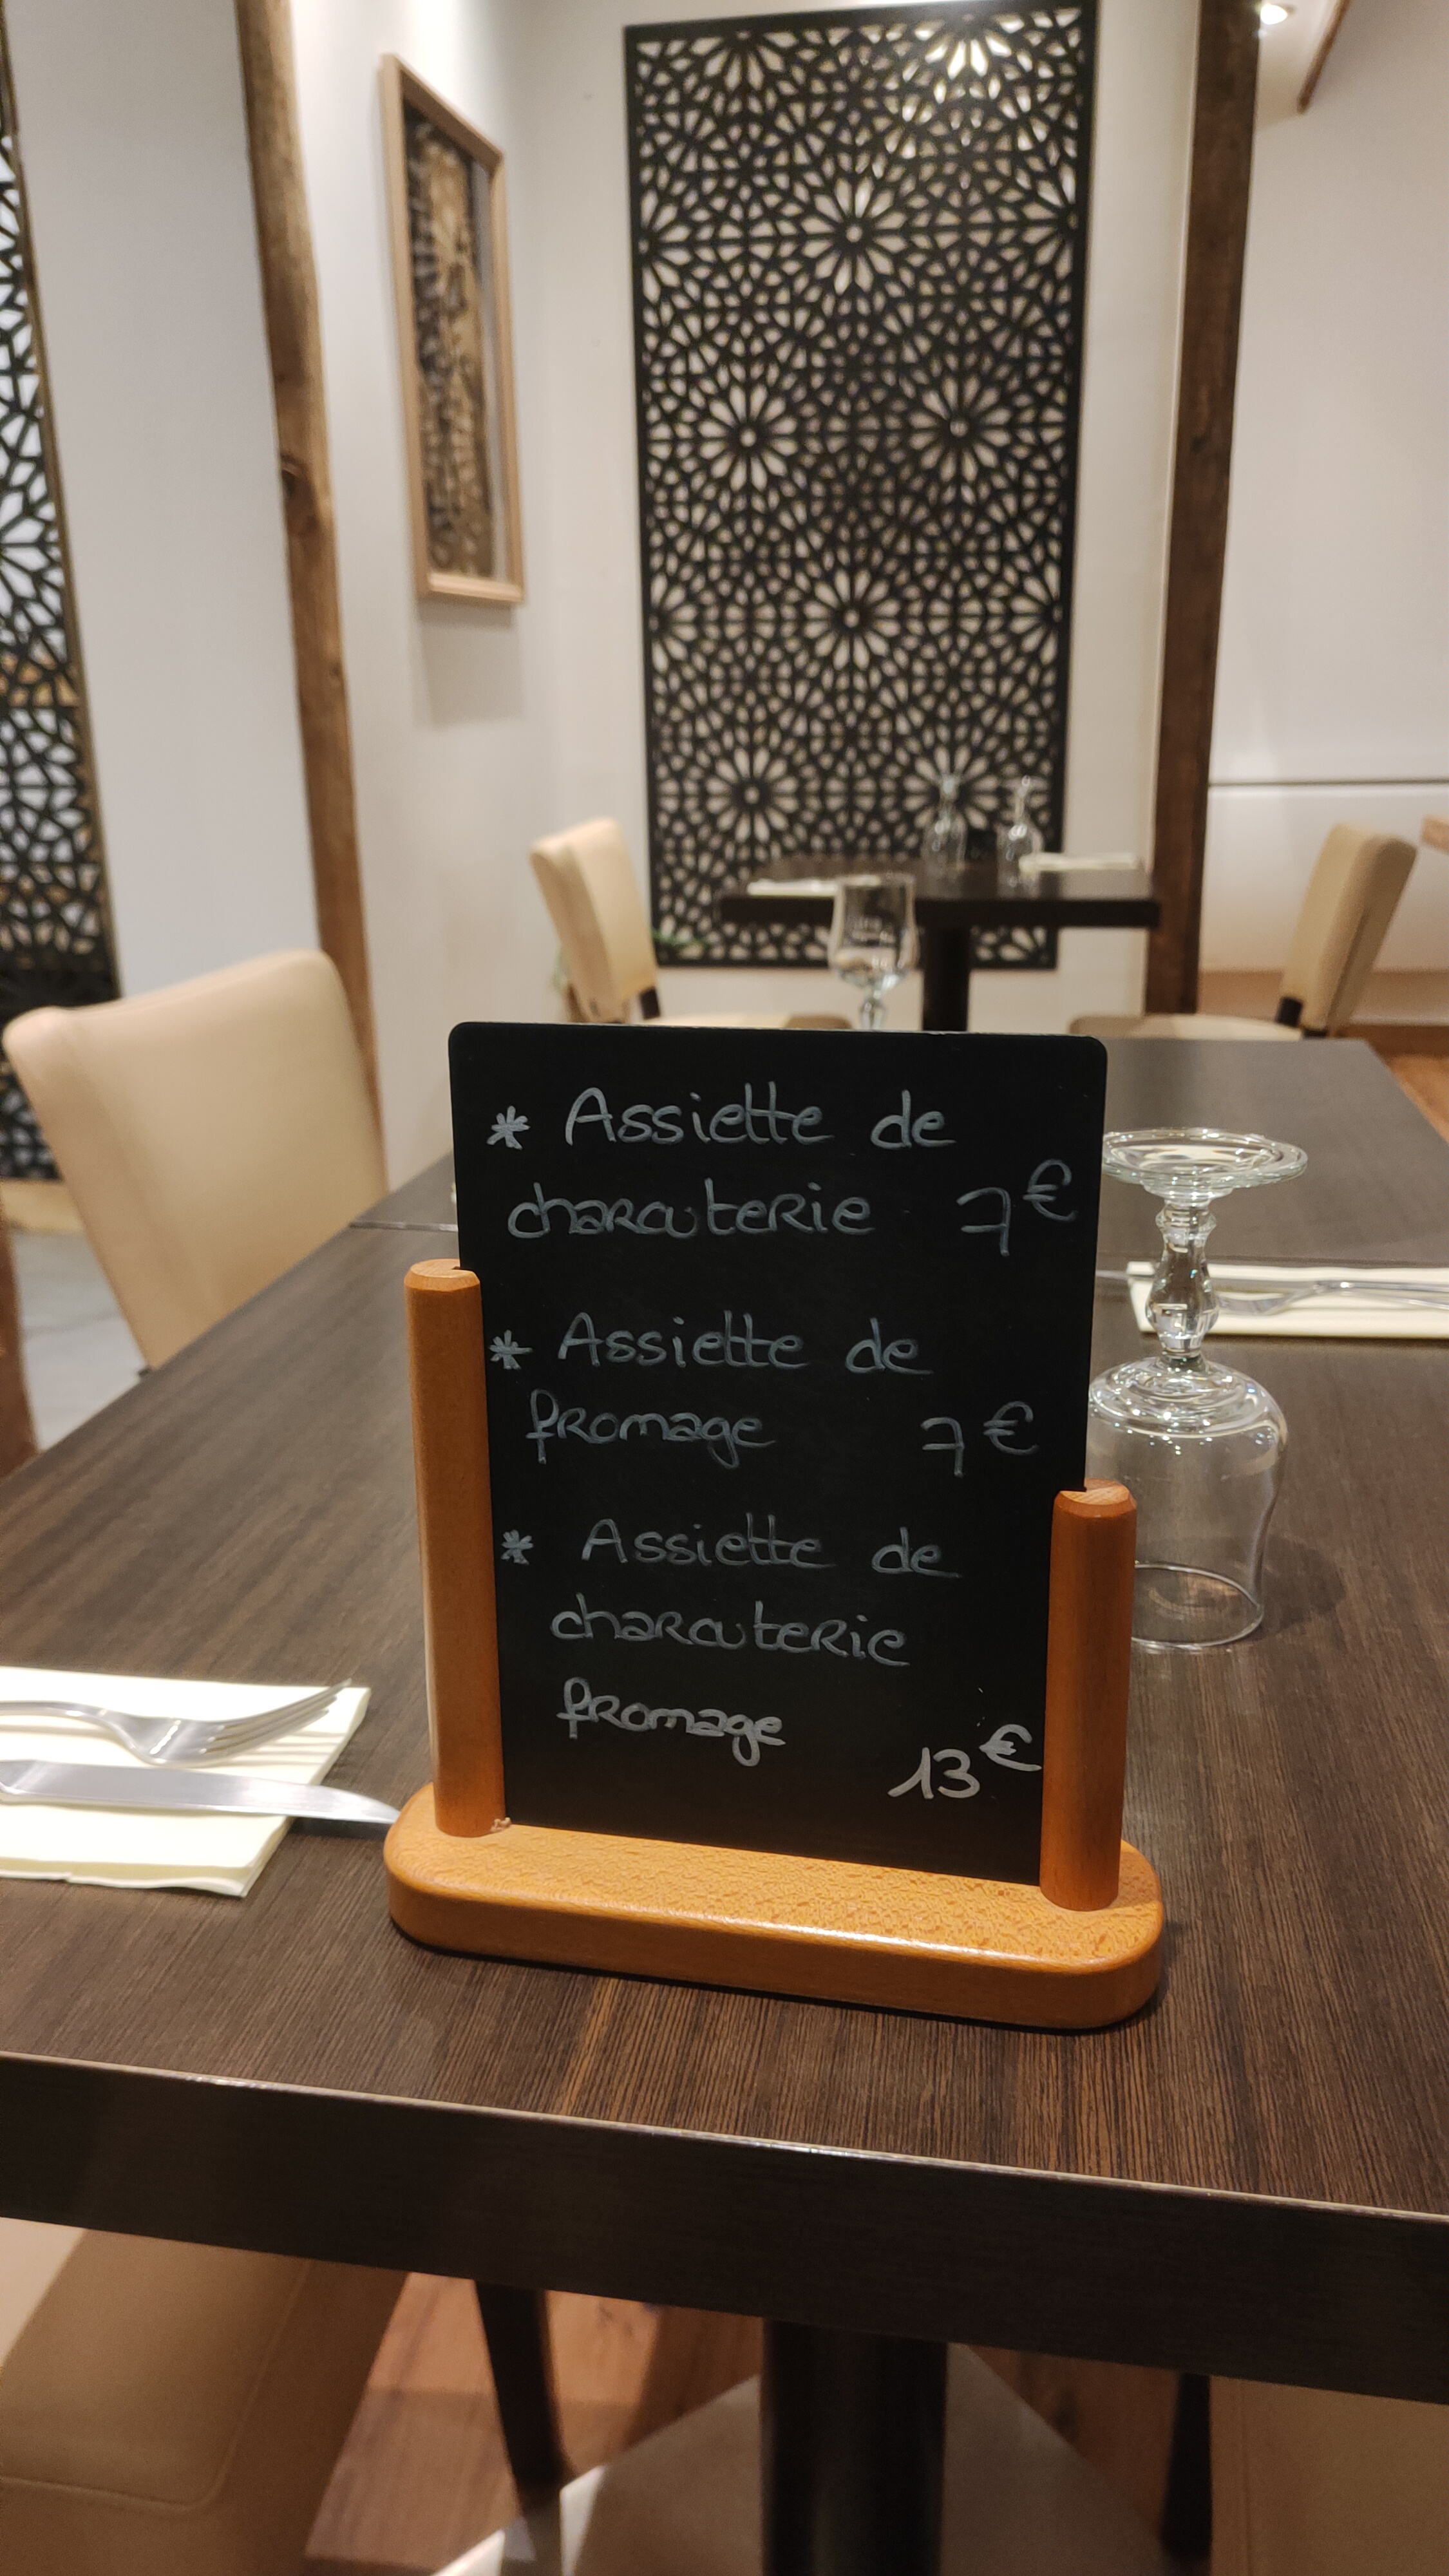 * Assiette de
charcuterie 7€
* Assiette de
fromage 7€
* Assiette de
charcuterie
fromage
13€